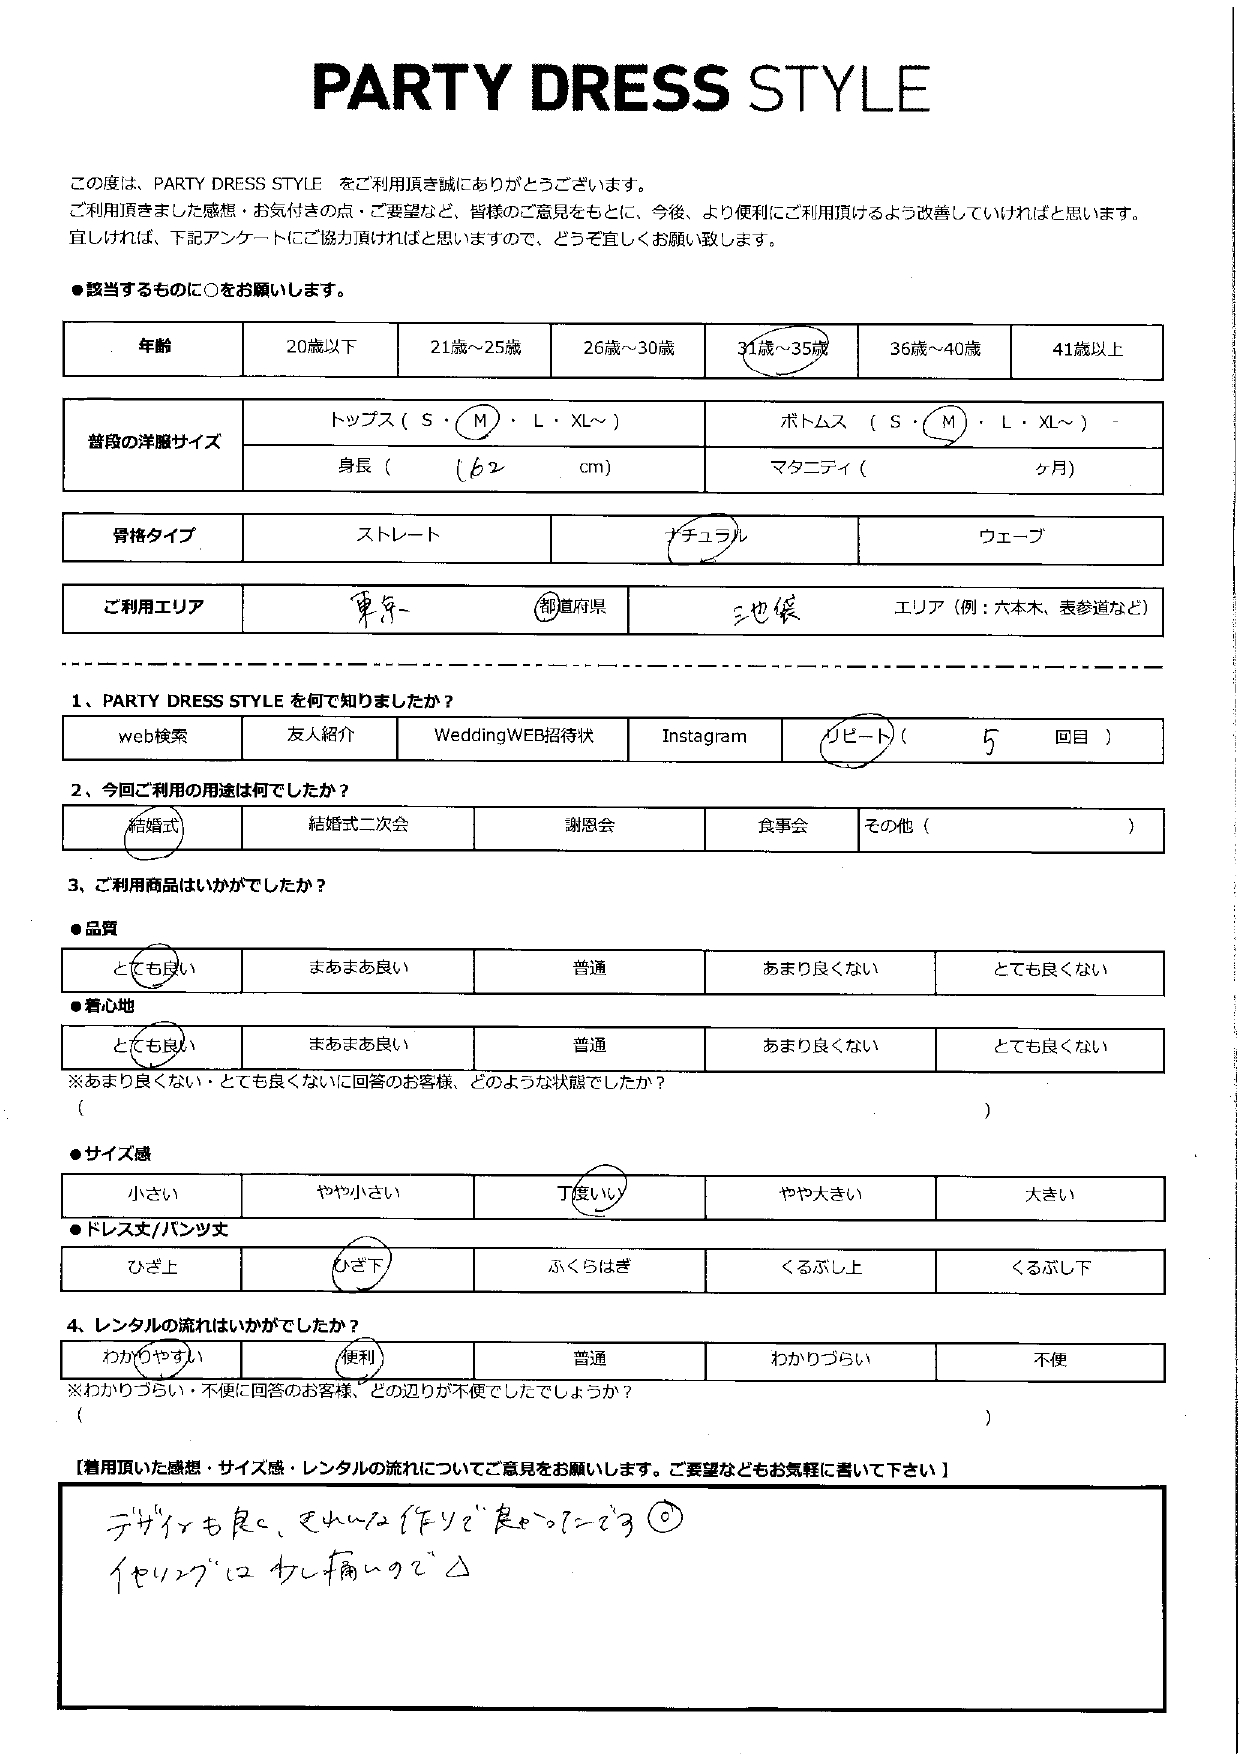 PARTY DRESS STYLE
この度は、PARTY DRESS STYLE をご利用頂き誠にありがとうございます。
ご利用頂きました感想・お気付きの点・ご要望など、皆様のご意見をもとに、今後、より便利にご利用頂けるよう改善していければと思います。
宜しければ、下記アンケートにご協力頂ければと思いますので、どうぞ宜しくお願い致します。
●該当するものに○をお願いします。
年齢 20歳以下 21歳～25歳 26歳～30歳 31歳～35歳 36歳～40歳 41歳以上
普段の洋服サイズ トップス ( S ・ M ・ L ・ XL～ ) ボトムス ( S ・ M ・ L ・ XL～ )
身長 ( 162 cm) マタニティ ( ヶ月)
骨格タイプ ストレート ナチュラル ウェーブ
ご利用エリア 東京 都道府県 池袋 エリア（例：六本木、表参道など）
1、PARTY DRESS STYLE を何で知りましたか？
web検索 友人紹介 WeddingWEB招待状 Instagram リピート ( 5 回目 )
2、今回ご利用の用途は何でしたか？
結婚式 結婚式二次会 謝恩会 食事会 その他 ( )
3、ご利用商品はいかがでしたか？
●品質
とても良い まあまあ良い 普通 あまり良くない とても良くない
●着心地
とても良い まあまあ良い 普通 あまり良くない とても良くない
※あまり良くない・とても良くないに回答のお客様、どのような状態でしたか？
( )
●サイズ感
小さい やや小さい 丁度いい やや大きい 大きい
●ドレス丈/パンツ丈
ひざ上 ひざ下 ふくらはぎ くるぶし上 くるぶし下
4、レンタルの流れはいかがでしたか？
わかりやすい 便利 普通 わかりづらい 不便
※わかりづらい・不便に回答のお客様、どの辺りが不便でしたでしょうか？
( )
【着用頂いた感想・サイズ感・レンタルの流れについてご意見をお願いします。ご要望などもお気軽に書いて下さい】
デザインも良く、きれいな作りで良かったです◎
イヤリングは少し痛いので△